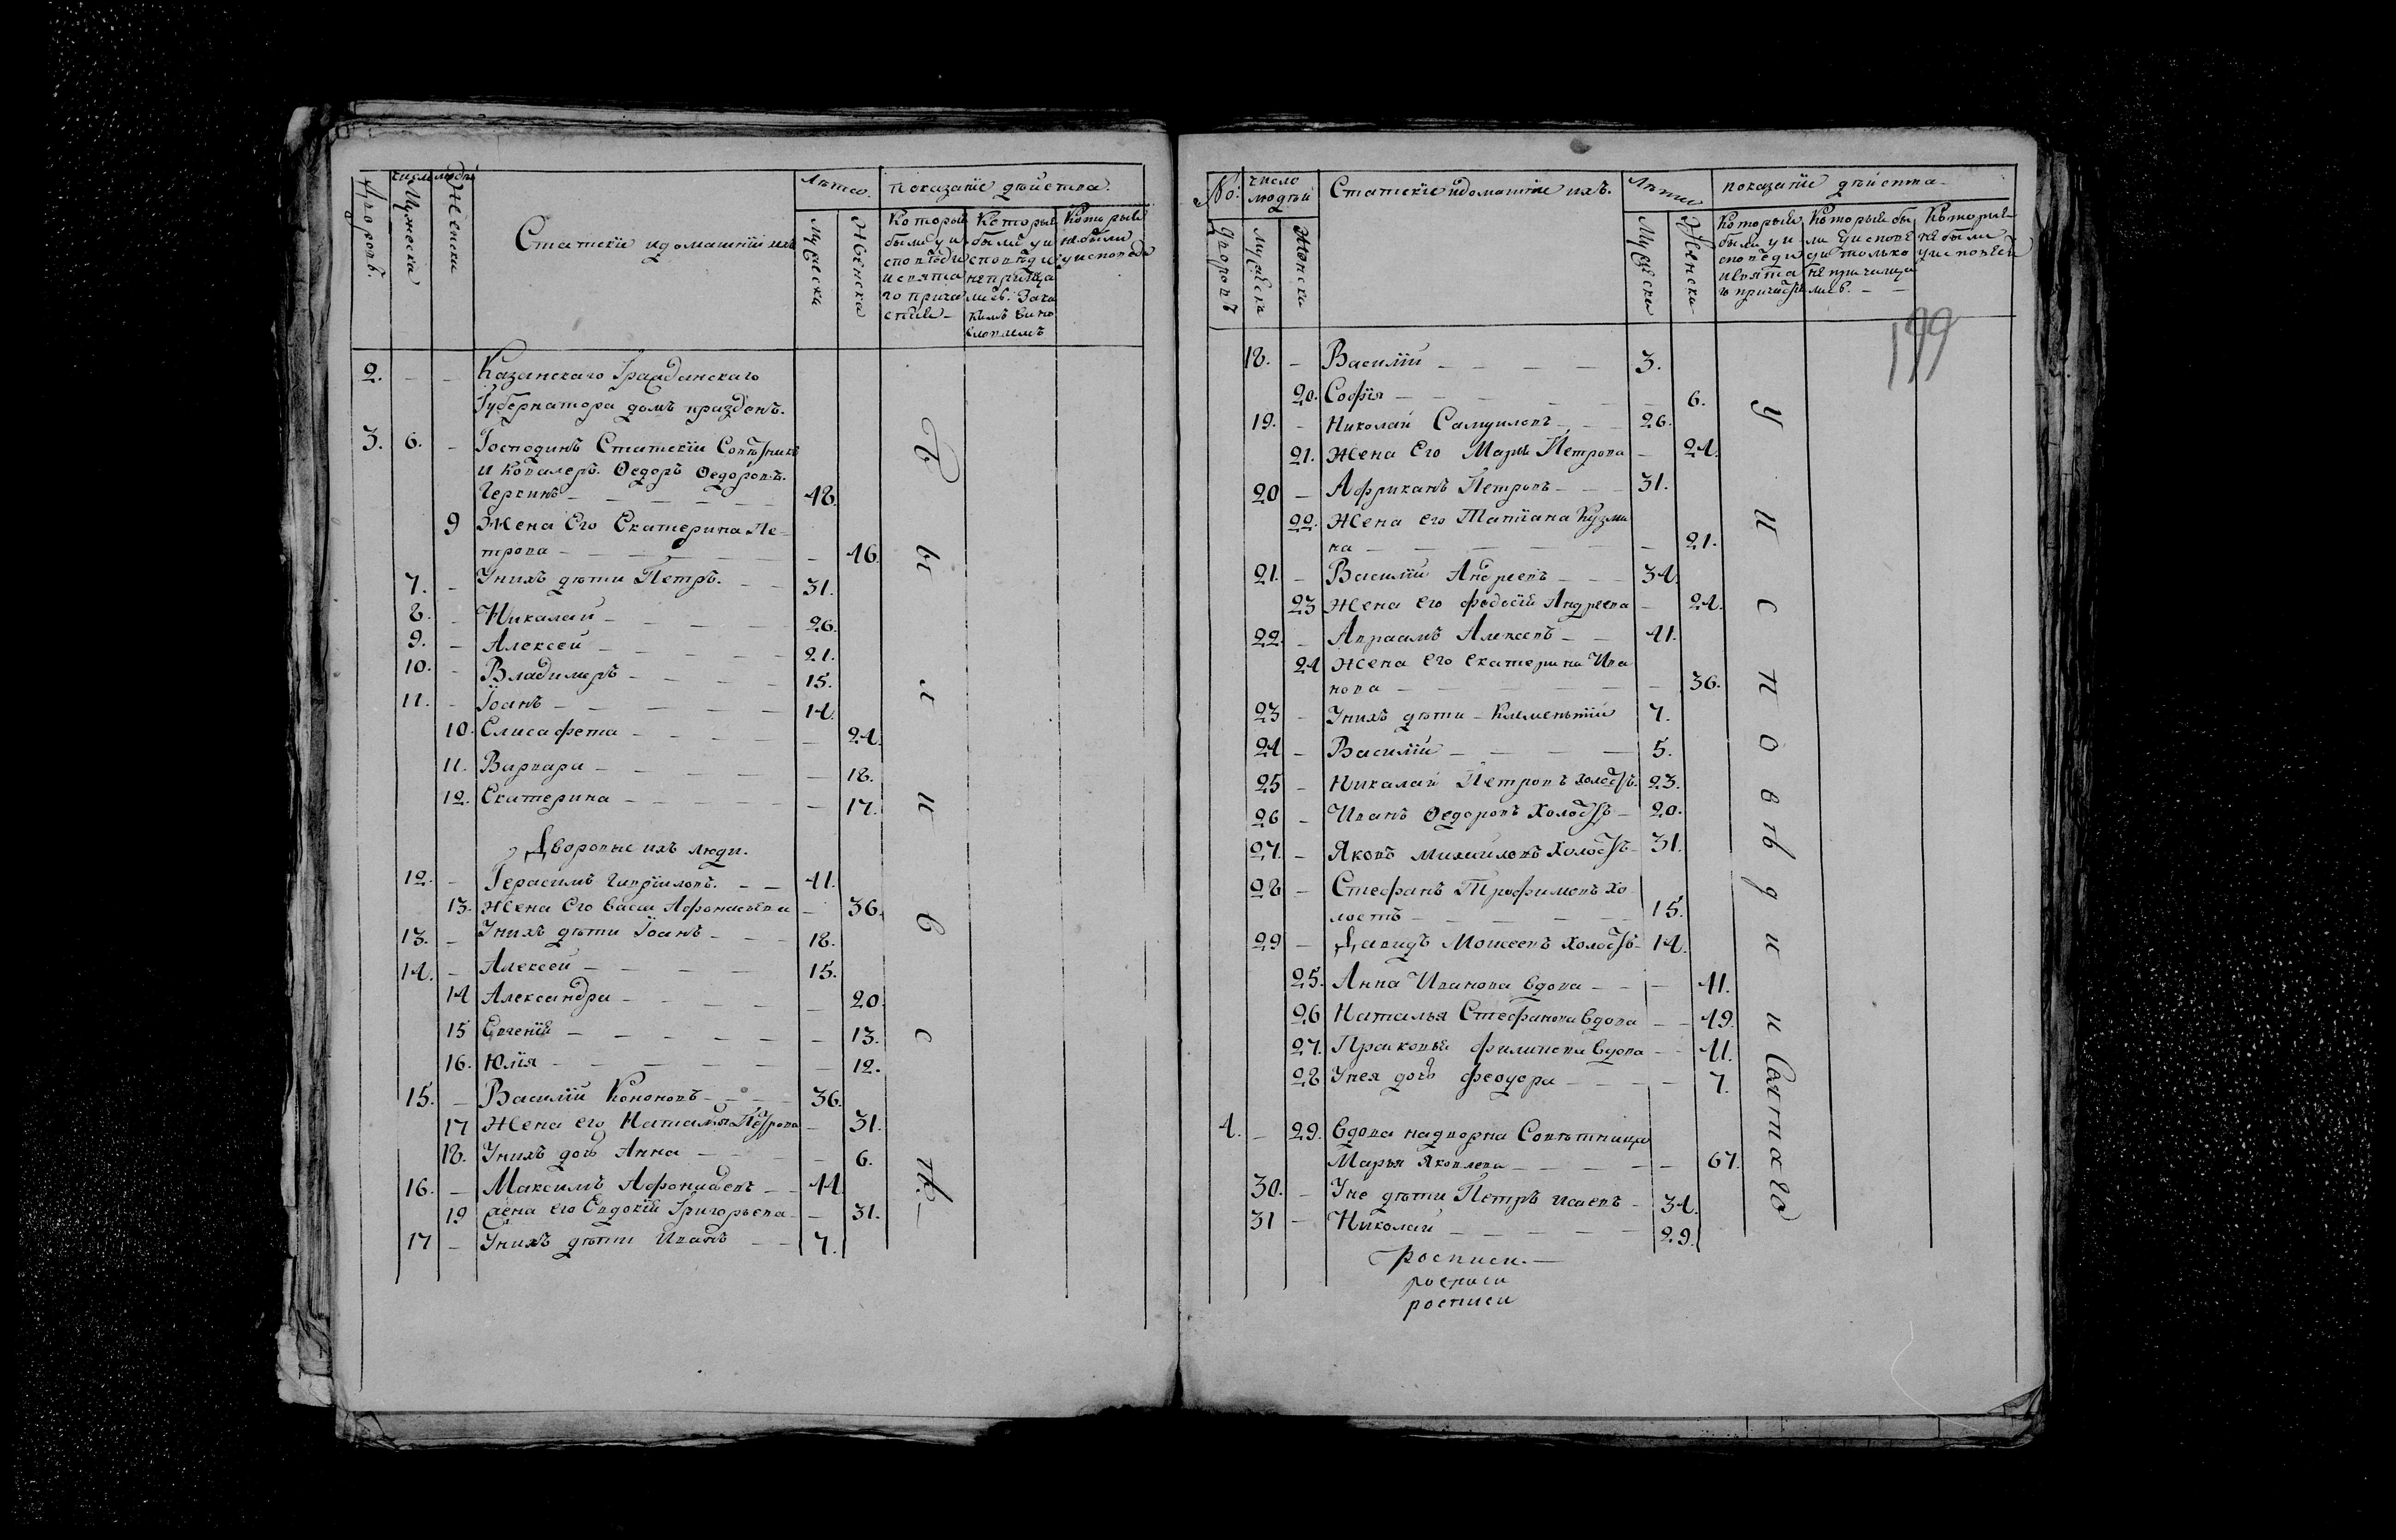 № дворовъ.
число людей
Мужеска
Женска
Статскïи идомашнïи ихъ
Лѣта.
Мужеска
Женска
показанïе дѣйства.
Которыи были у исповѣди исвята го прича стïя
Которыи были у исповѣди
Которыи небыли уисповѣди
2. — — Казанскаго Гражданскаго
Губернатора домъ празденъ.
3. 6. — Господинъ Статскïи Совѣтникъ
и Кавалеръ. Ѳедоръ Ѳедоровъ.
— — — — 48.
9 Жена Его Екатерина Пе-
трова — — — — — 46
7. — Унихъ дѣти Петръ. — — 31.
8. — Николаи — — — — 26.
9. — Алексеи — — — — 21.
10. — Владимеръ — — — — 15.
11. — Iоанъ — — — — — 14.
10. Елисафета — — — — — 24.
11. Варвара — — — — — 18.
12. Екатерина — — — — — 17.
Дворовые ихъ люди.
12. — Герасимъ Гаврïиловъ. — — 41.
13. Жена Его Васса Афонасьева — 36.
13. — Унихъ дѣти Iоанъ — — 18.
14. — Алексеи — — — — 15.
14 Александра — — — — — 20.
15 Евгенïя — — — — — — 13.
16. Юлïя — — — — — — 12.
15. — Василïи Кононовъ — — — 36.
17 Жена его Наталья Петрова — 31.
18. Унихъ дочь Анна — — — — 6.
16. — Максимъ Афонасьевъ — — 44.
19 жена его Евдокïя Григорьева — — 31.
17 — Унихъ дѣти Иванъ — — 7.
№:
дворовъ
число людей
мужеска
женска
Статскïе идоматнïе ихъ.
Лѣта
Мужеска
Женска
показанïе дѣиства —
Которыи были у исповѣди исвята г причастïя
Которыи бы ли уисповѣ ди только не причащались. — —
Которые не были уисповѣди
199
18. — Василïи — — — — 3.
20. Софïя — — — — — 6.
19. — Николаи Самуиловъ — — 26.
21. Жена Его Марья Петрова — 24.
20 — Африканъ Петровъ — — — 31.
22. Жена его Татïана Кузми
на — — — — — — 21.
21. — Василïи Андреевъ — — — 34.
23 Жена его Ѳодосïя Андреева — 24.
22. — Авраамъ Алексеевъ — — 41.
24 Жена его Екатерина Ива
нова — — — — — — 36.
23 — Унихъ дѣти — Климентïи 7.
24 — Василïи — — — — 5.
25 — Николаи Петровъ холостъ. 23.
26 — Иванъ Ѳедоровъ Холостъ — 20.
27. — Яковъ Михаиловъ Холостъ — 31.
28 — Стефанъ Трофимовъ хо
лостъ — — — — — — 15.
29 — Давидъ Моисеевъ холостъ — 14.
25. Анна Иванова вдова — — — 41.
26 Наталья Стефанова вдова — — 49.
27. Прасковья Филипова вдова — — 41.
28 Унея дочь Феодора — — — — 7.
4. — 29. Вдова надворна Совѣтница
Марья Яковлева — — — — — 67.
30. — Уне дѣти Петръ Исаевъ — 34.
31 — Николаи — — — — — 29.
росписи. —
росписи
росписи
у исповѣди и Святаго